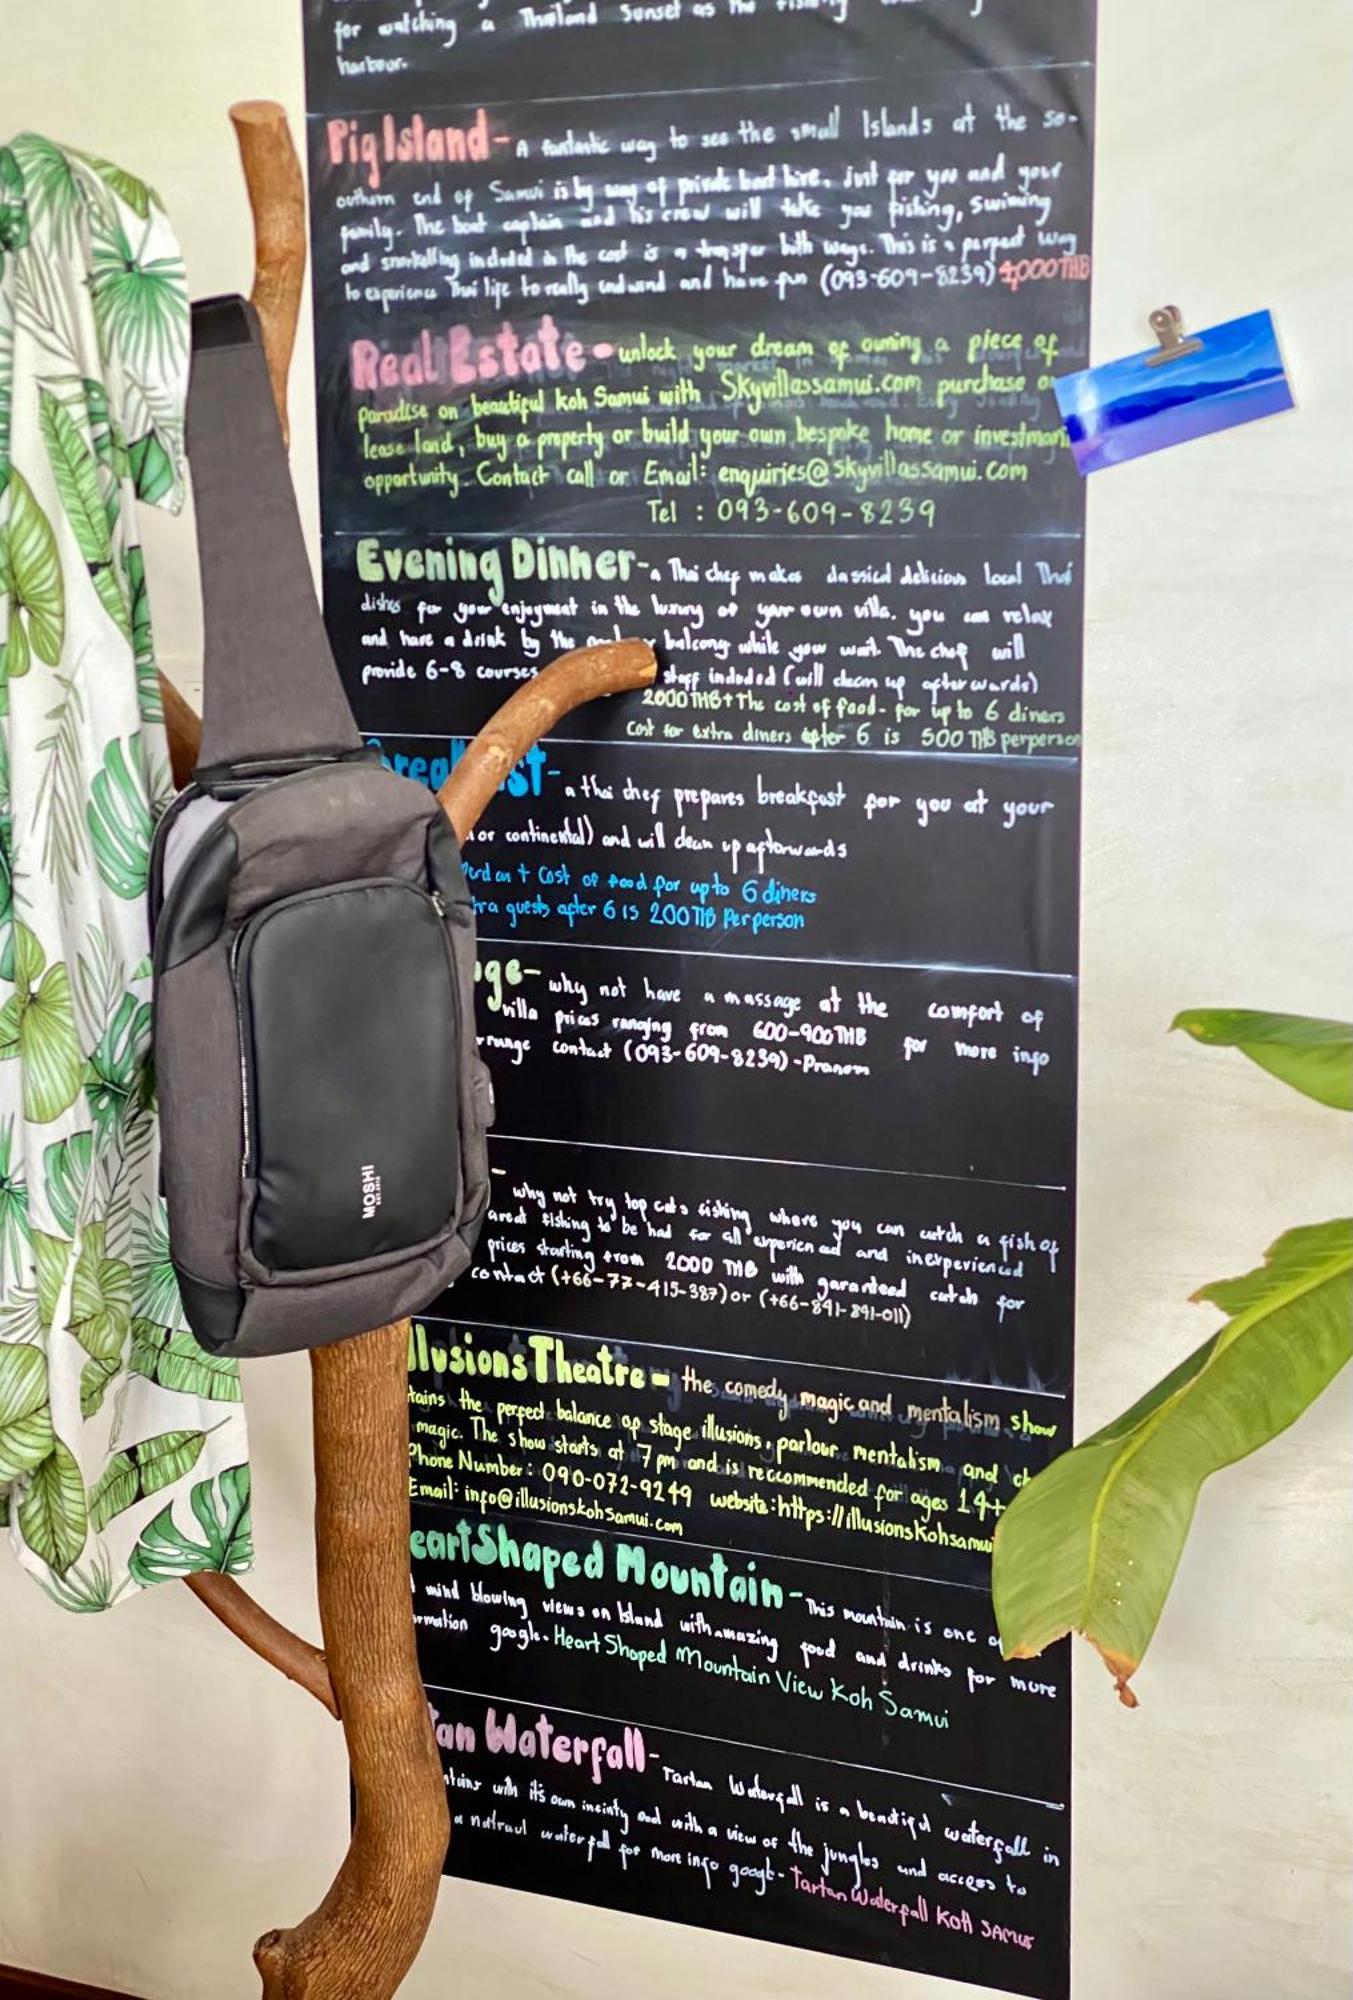 for watching a Thailand Sunset as the
harbour.
Pig Island - A fantastic way to see the small Islands at the so-
outhern end of Samui is by way of private boat hire, just for you and your
family. The boat captain and his crew will take you fishing, swiming
and snorkelling included in the cost is a transfer both ways. This is a perfect way
to experience Thai life to really and have fun (093-609-8239) 4,000THB
Real Estate - unlock your dream of owning a piece of
paradise on beautiful koh Samui with Skyvillassamui.com purchase or
lease land, buy a property or build your own bespoke home or investment
opportunity. Contact call or Email: enquiries@skyvillassamui.com
Tel : 093-609-8239
Evening Dinner - a Thai chef makes classical delicious local Thai
dishes for your enjoyment in the luxury of your own villa. you can relax
and have a drink by the balcony while you wait. The chef will
provide 6-8 courses staff included (will clean up afterwards)
2000THB + The cost of food - for up to 6 diners
Cost for extra diners after 6 is 500 THB perperson
a thai chef prepares breakfast for you at your
or continental) and will clean up afterwards
+ Cost of food for upto 6 diners
guests after 6 is 200THB Perperson
why not have a massage at the comfort of
villa prices ranging from 600-900THB for more info
contact (093-609-8239) - Pranom
why not try top cats fishing where you can catch a fish of
great fishing to be had for all experienced and inexperienced
prices starting from 2000 THB with garanteed catch for
contact (+66-77-415-387) or (+66-891-891-011)
llusions Theatre - the comedy magic and mentalism show
tains the perfect balance of stage illusions, parlour mentalism and
magic. The show starts at 7pm and is reccommended for ages 14+
Phone Number: 090-072-9249 website: https://illusionskohsamui
Email: info@illusionskohSamui.com
eart Shaped Mountain - This mountain is one
mind blowing views on Island with amazing food and drinks for more
google - Heart Shaped Mountain View Koh Samui
tan Waterfall - Tartan Waterfall is a beautiful waterfall in
with it's own and with a view of the jungles and access to
a natraul waterfall for more info googl - Tartan Waterfall Koh SAMUI
MOSHI